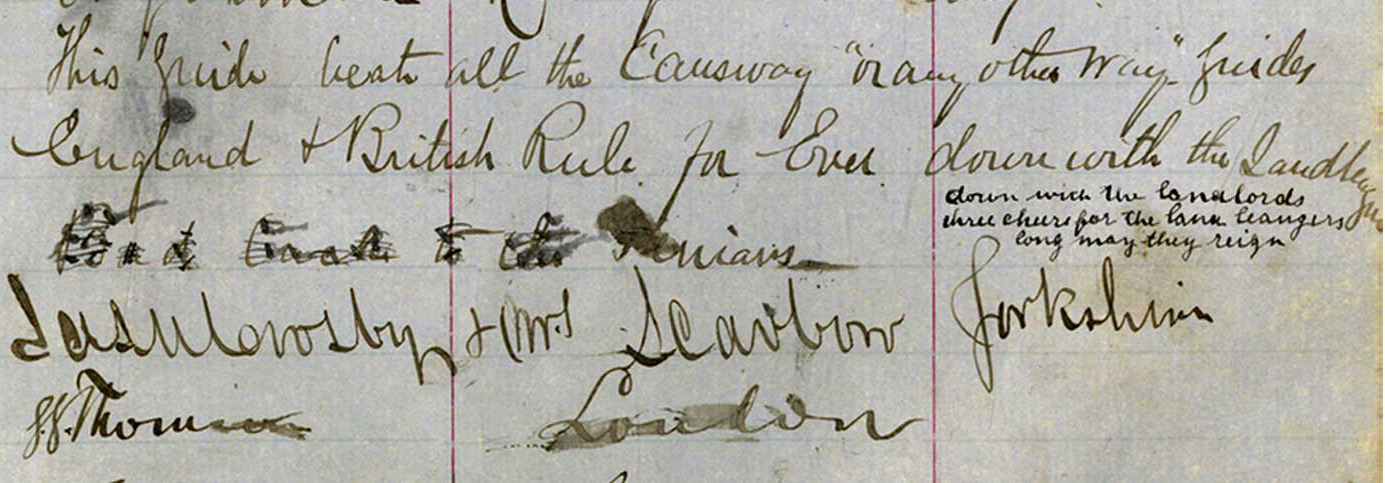 This Guide beats all the Causeway "or any other way" guides
England & British Rule for Ever down with the Landleaguers
down with the landlords
three cheers for the land leaugers
long may they reign
to the Fenians
& Mrs Scarboro Yorkshire
J. Thomson London